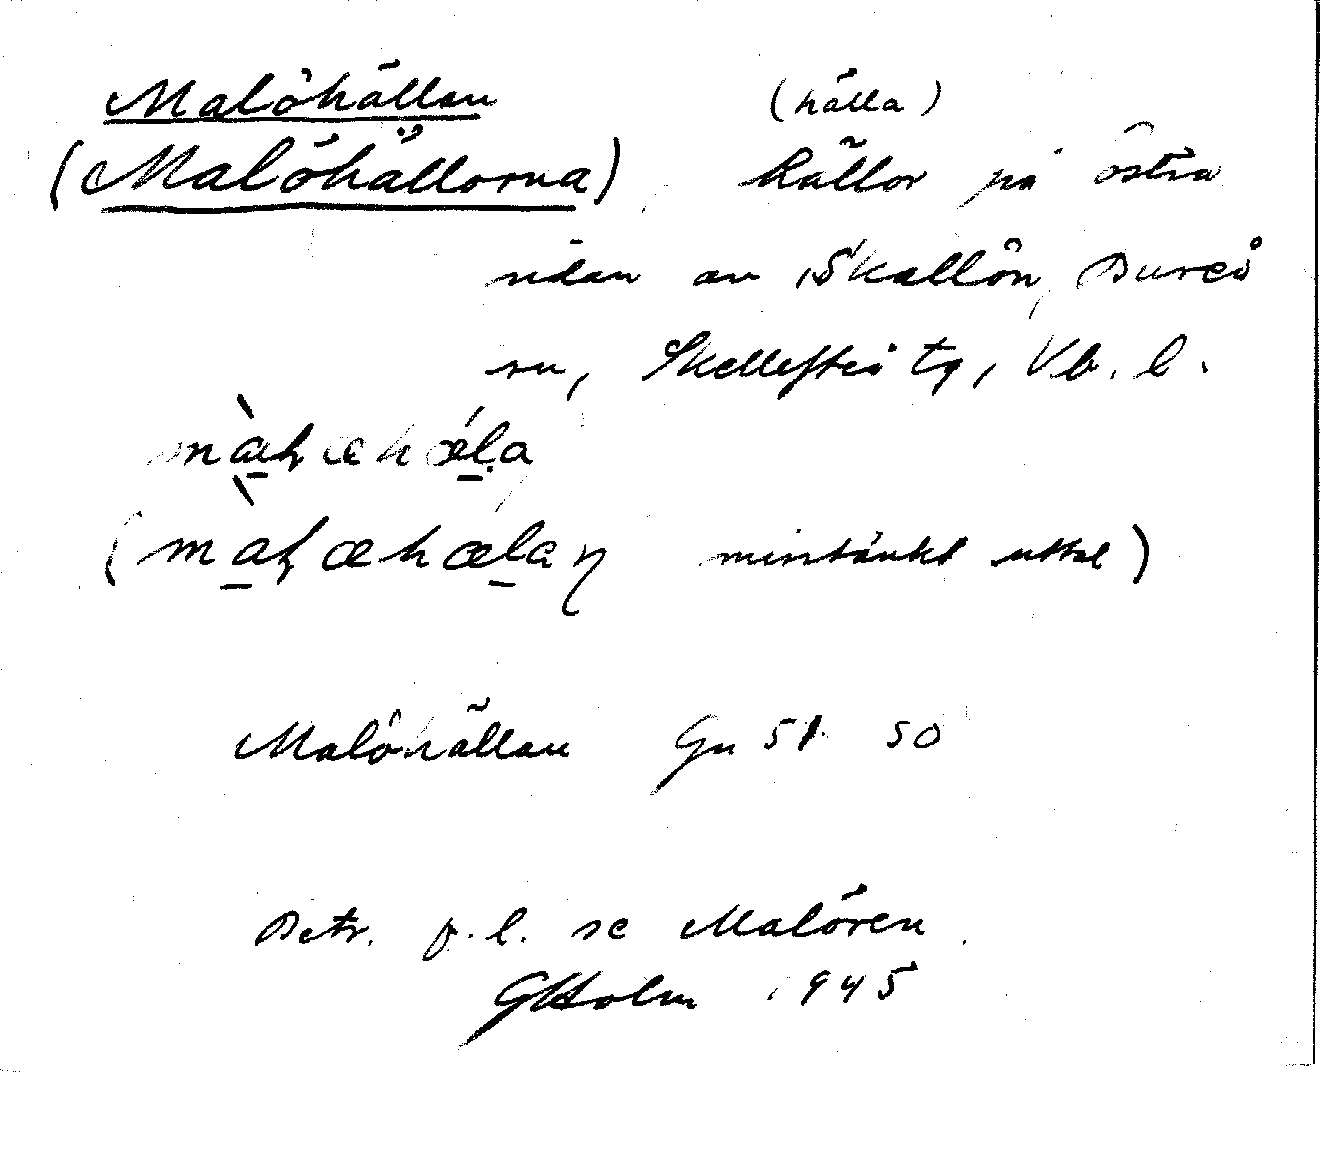 Malöhällan (hälla)
(Malöhällorna) hällor på östra
sidan av Skallön, Bureå
sn, Skellefteå tg, Vb. l.
(misstänkt uttal)
Malöhällan Gn 51 50
Betr. f.l. se Malören
GHolm 1945